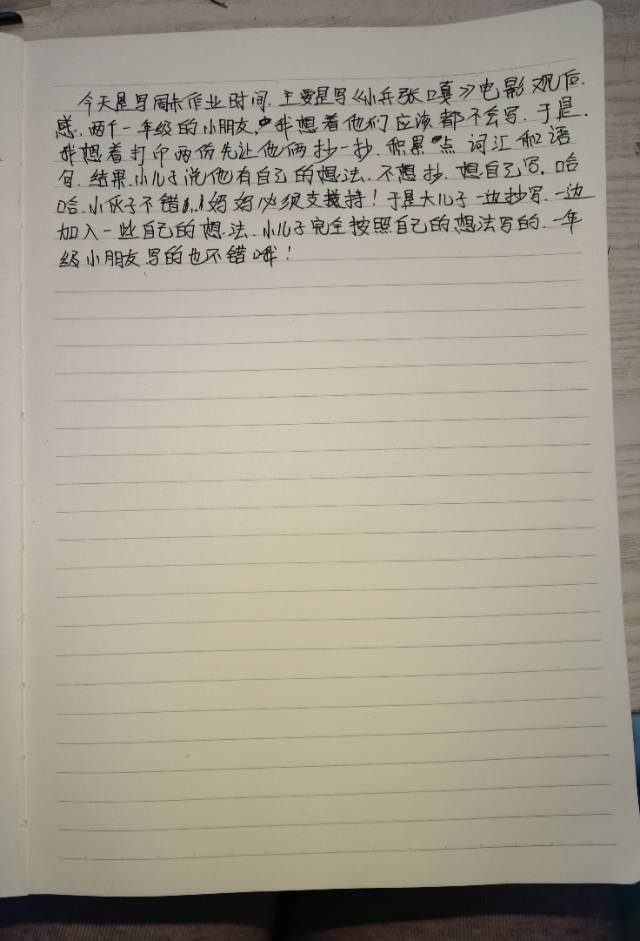 今天是写周末作业时间.主要是写《小兵张嘎》电影观后.
感.两个一年级的小朋友,我想着他们应该都不会写.于是.
我想着打印两份先让他俩抄一抄.积累点词汇和语
句.结果.小儿子说他有自己的想法.不想抄.想自己写.哈
哈.小伙子不错,妈妈必须支持!于是大儿子一边抄写.一边
加入一些自己的想法.小儿子完全按照自己的想法写的.一年
级小朋友写的也不错哦!